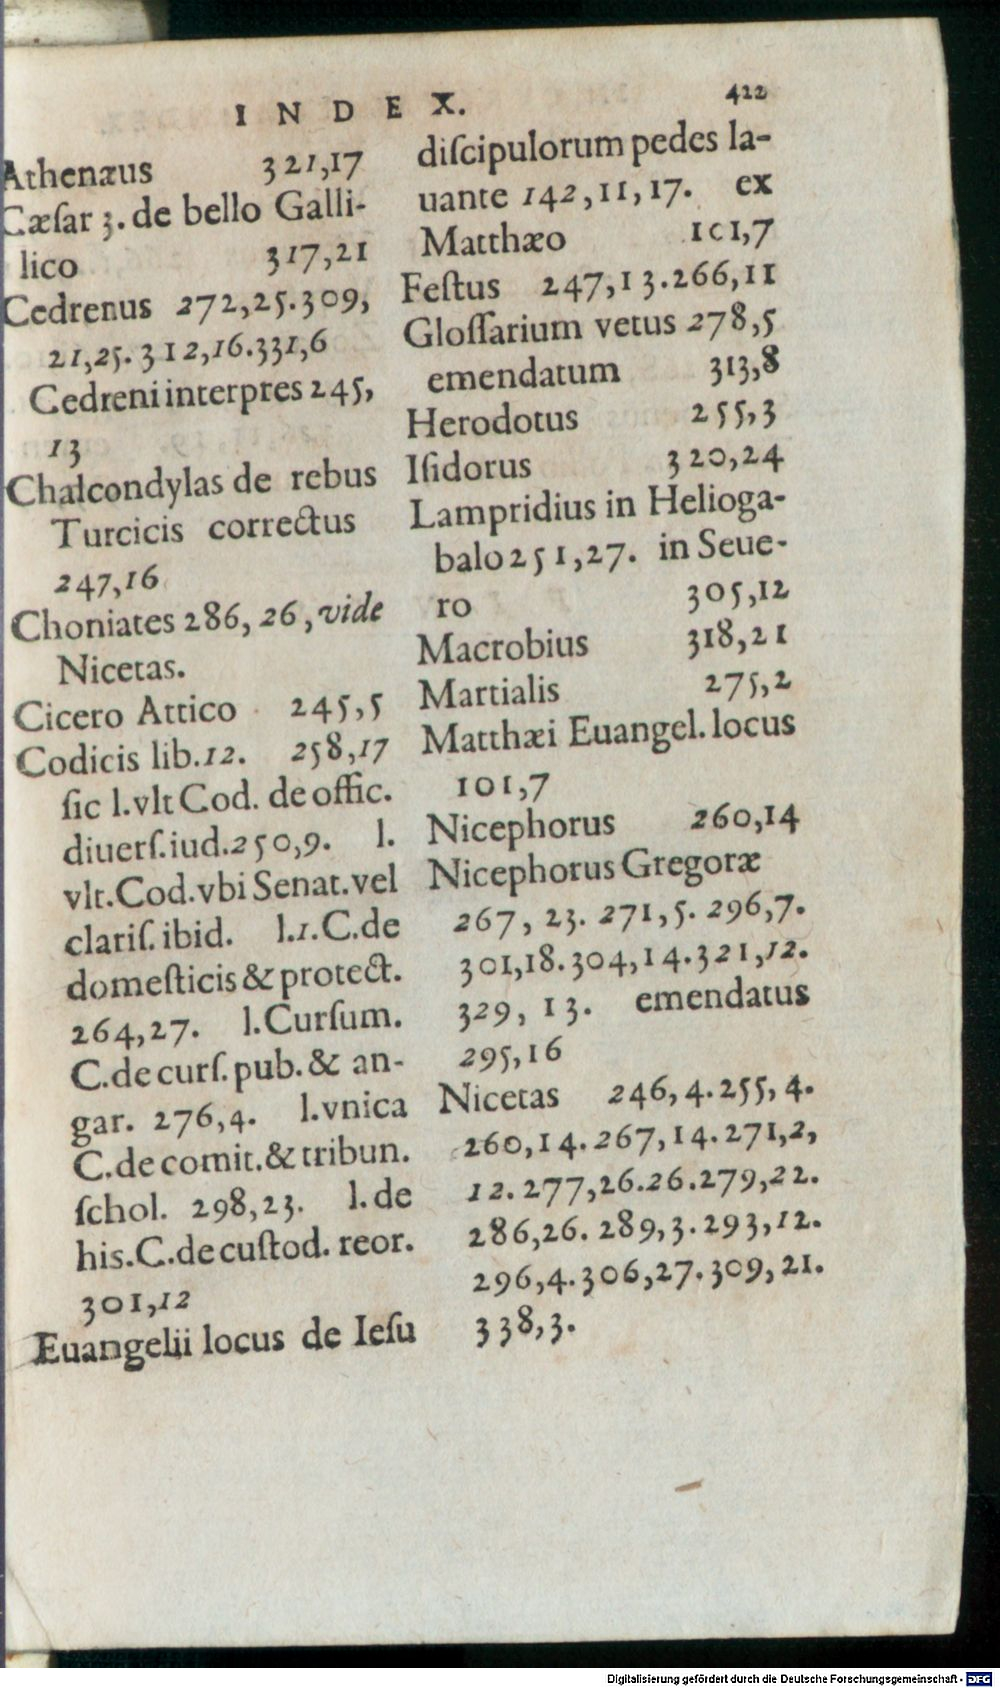 INDEX. 422
Athenæus 321,17
Cæſar 3. de bello Galli-
lico 317,21
Cedrenus 272,25.309,
21,25.312,16.331,6
Cedreni interpres 245,
13
Chalcondylas de rebus
Turcicis correctus
247,16
Choniates 286, 26, vide
Nicetas.
Cicero Attico 245,5
Codicis lib.12. 258,17
ſic l.vlt Cod. de offic.
diuerſ.iud.250,9. l.
vlt.Cod.vbi Senat.vel
clariſ. ibid. l.1.C.de
domeſticis & protect.
264,27. l.Curſum.
C.de curſ. pub. & an-
gar. 276,4. l.vnica
C.de comit.& tribun.
ſchol. 298,23. l. de
his.C.de cuſtod. reor.
301,12
Euangelii locus de Ieſu
diſcipulorum pedes la-
uante 142,11,17. ex
Matthæo 101,7
Feſtus 247,13.266,11
Gloſſarium vetus 278,5
emendatum 313,8
Herodotus 255,3
Iſidorus 320,24
Lampridius in Helioga-
balo 251,27. in Seue-
ro 305,12
Macrobius 318,21
Martialis 275,2
Matthæi Euangel. locus
101,7
Nicephorus 260,14
Nicephorus Gregoræ
267, 23. 271,5. 296,7.
301,18.304,14.321,12.
329, 13. emendatus
295,16
Nicetas 246,4.255,4.
260,14.267,14.271,2,
12.277,26.26.279,22.
286,26. 289,3.293,12.
296,4.306,27.309,21.
338,3.
Digitalisierung gefördert durch die Deutsche Forschungsgemeinschaft - DFG